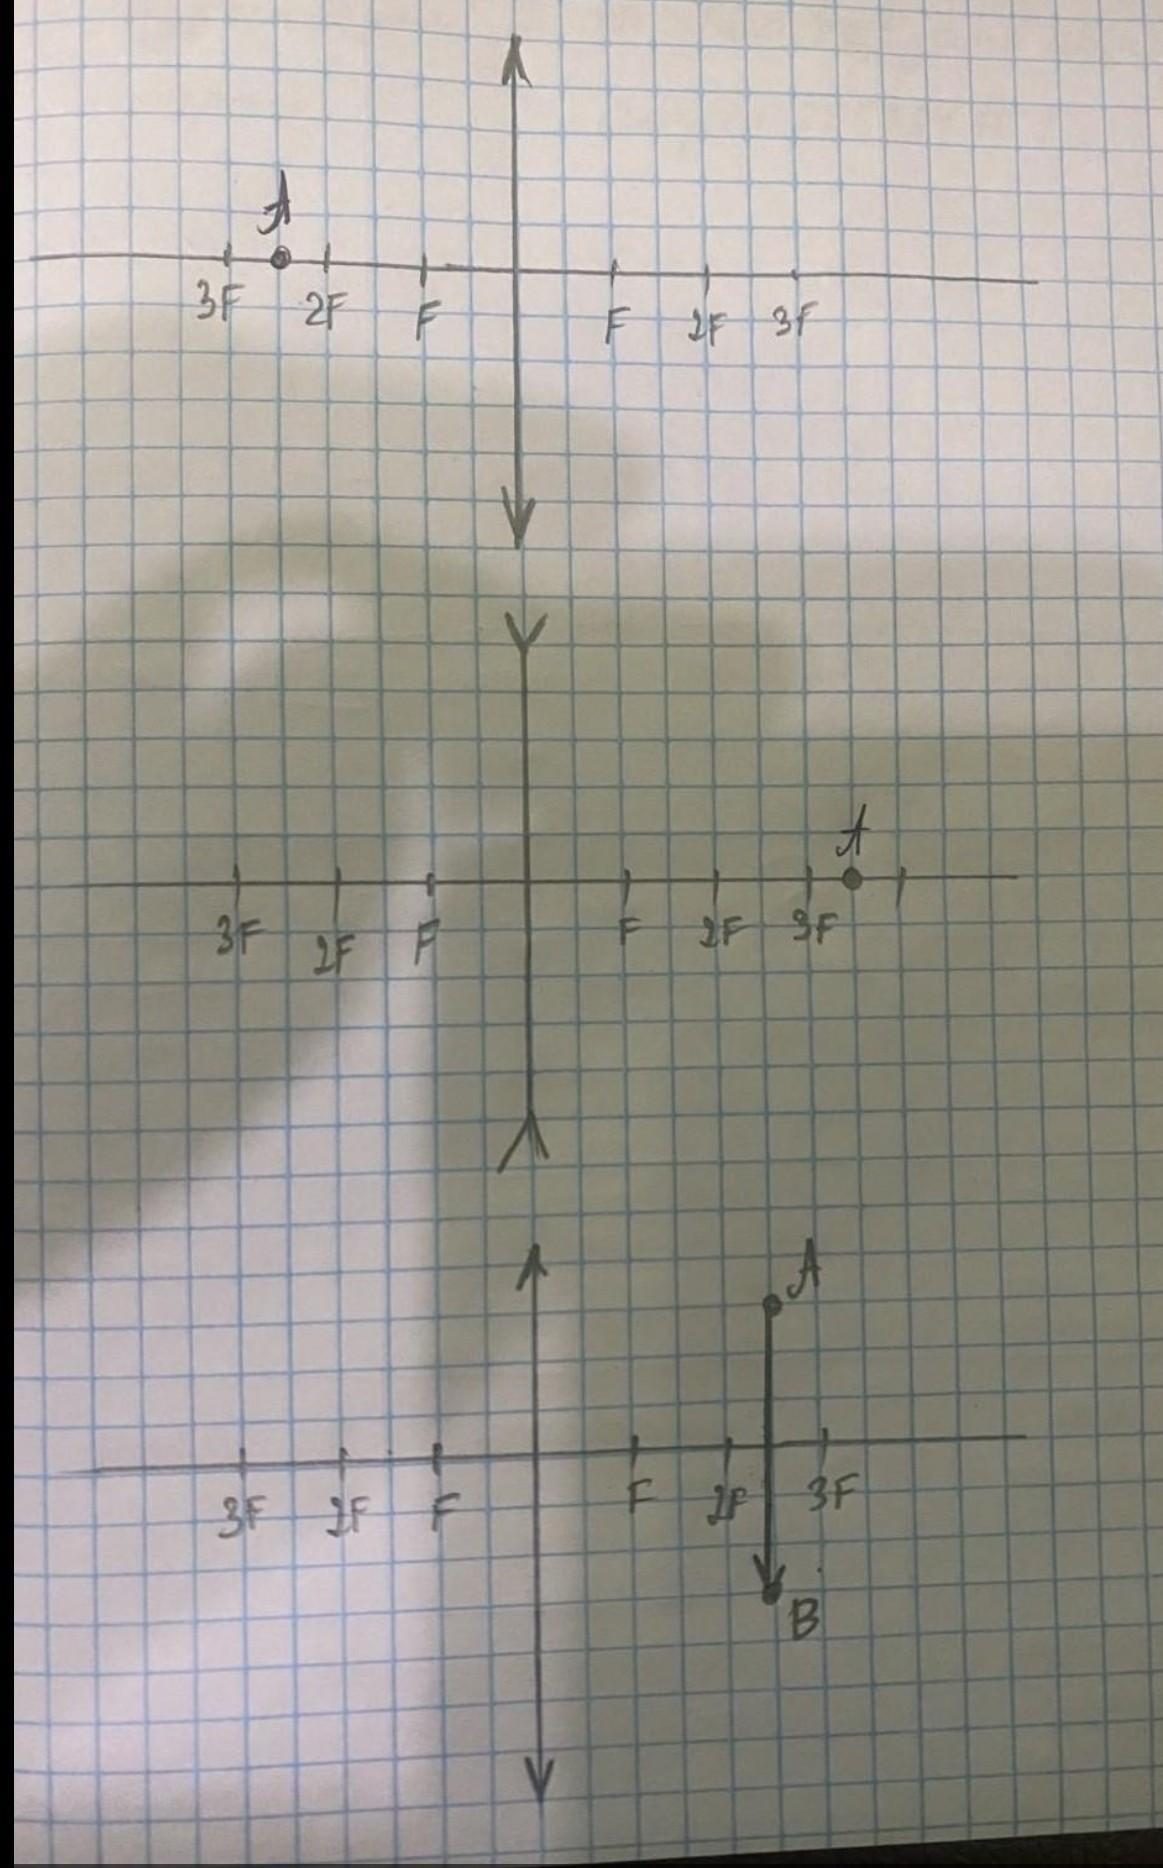 A
3F 2F F F 2F 3F
A
3F 2F F F 2F 3F
A
3F 2F F F 2F 3F
B